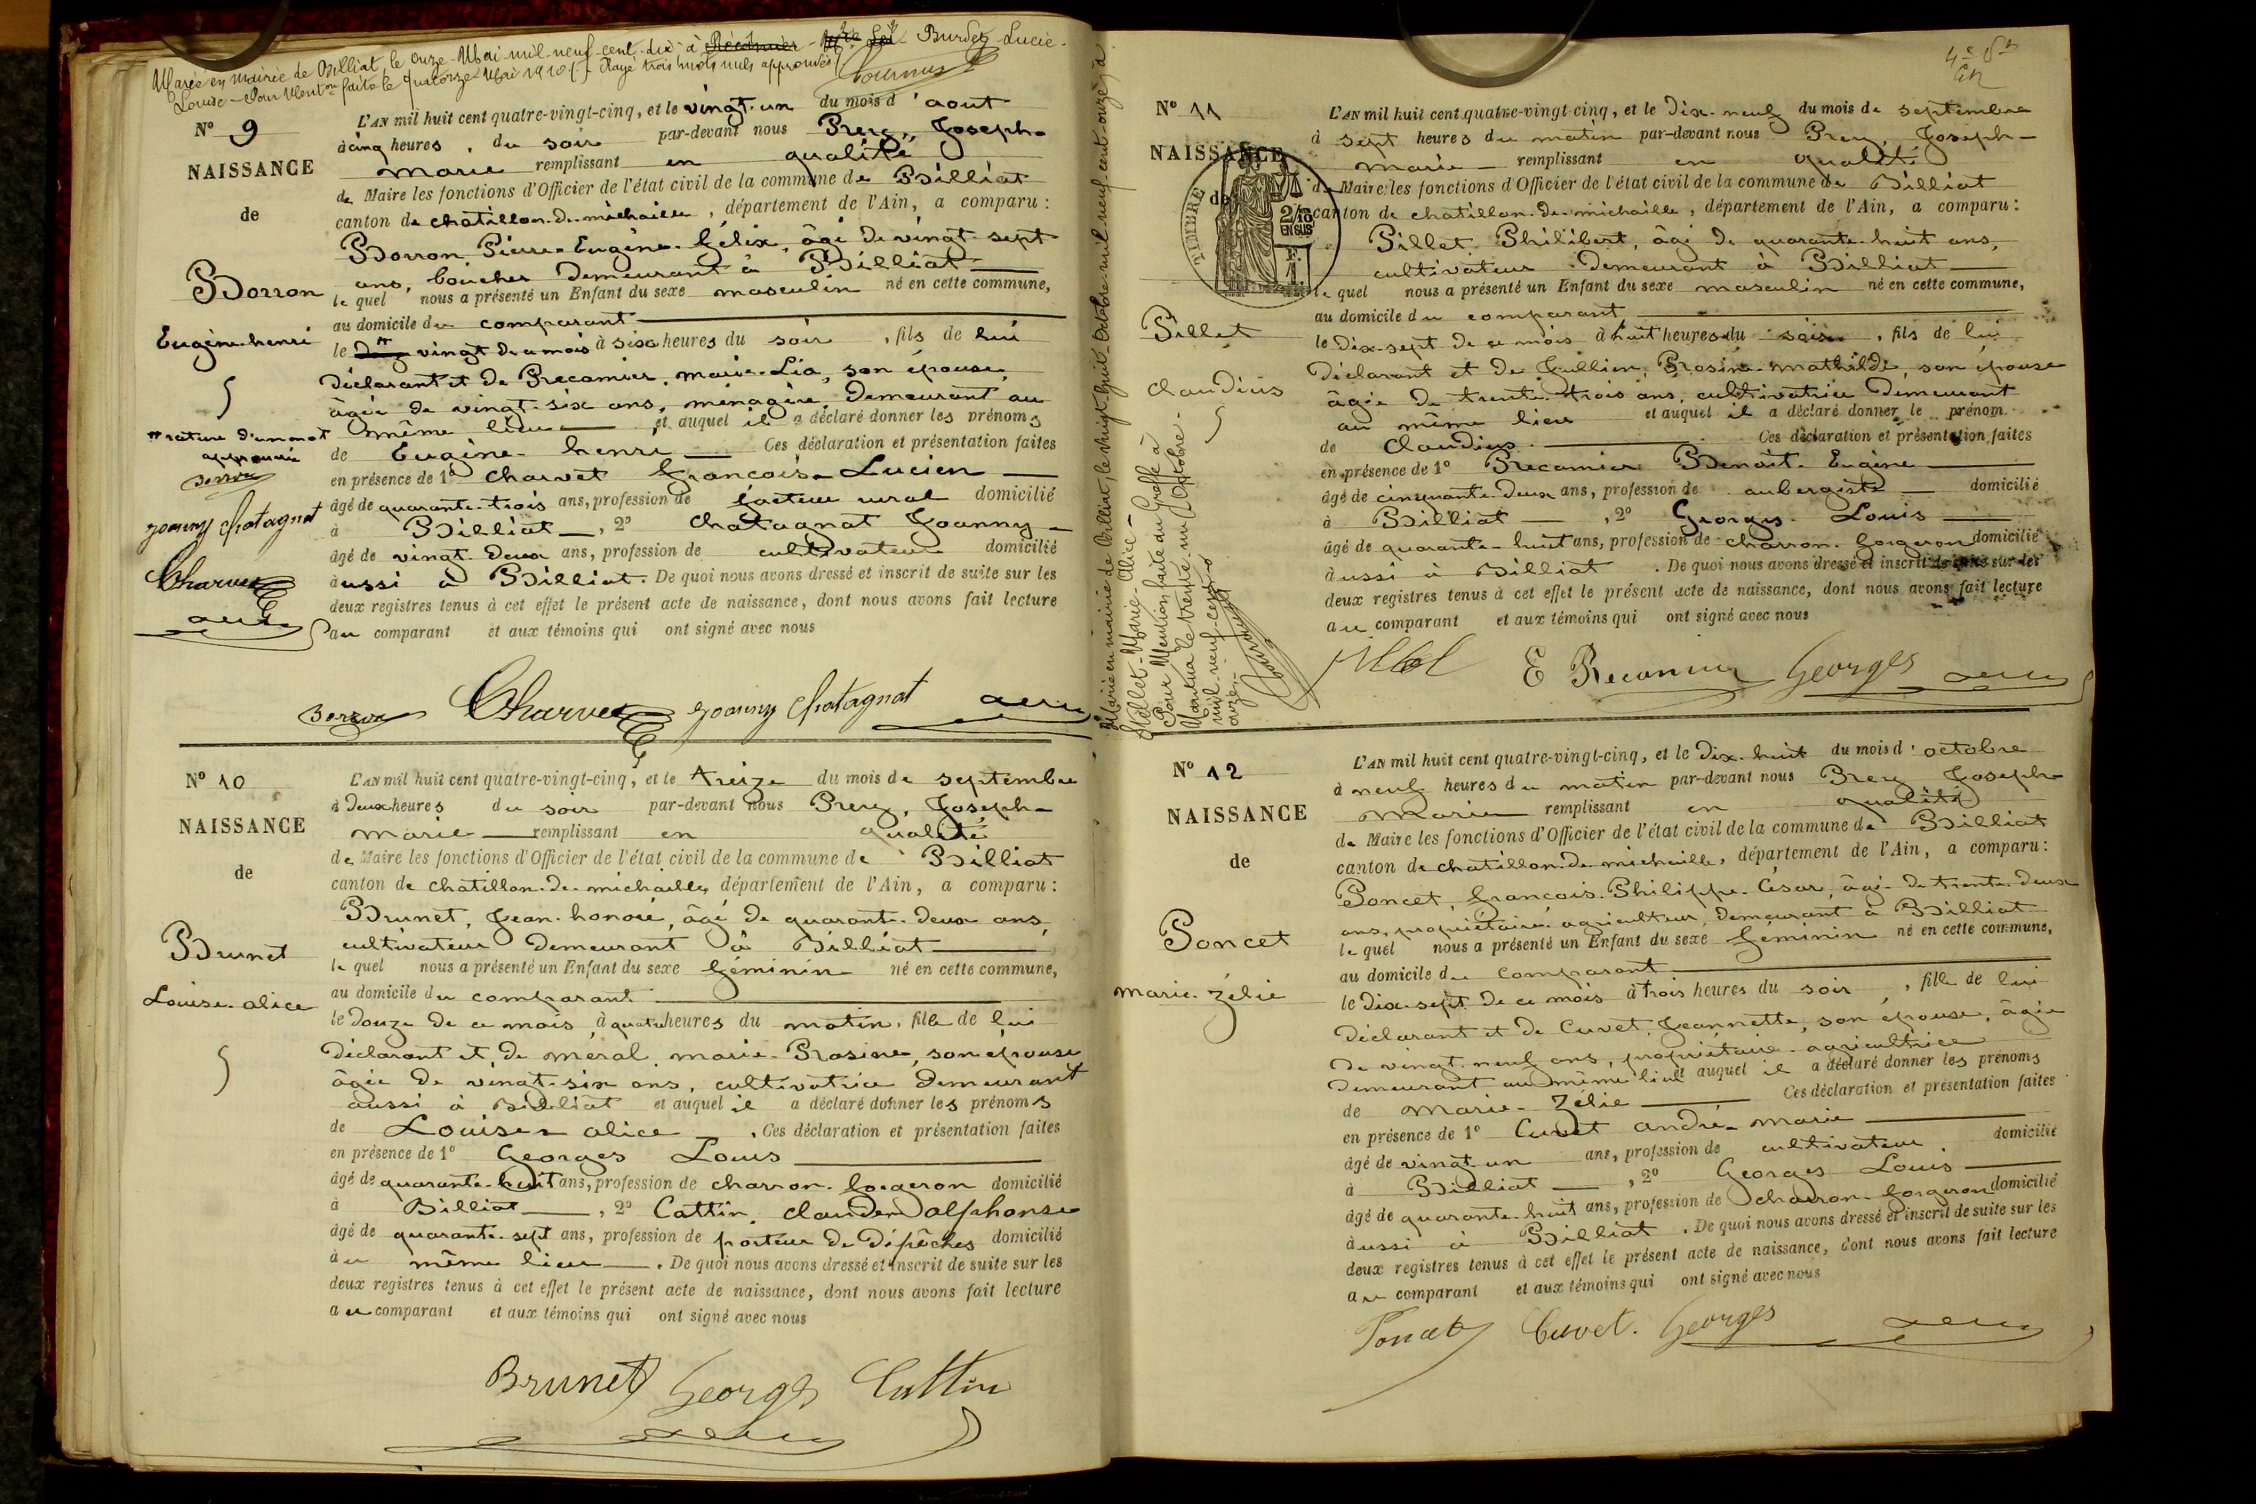 Marié en mairie de Billiat, le onze Mai mil neuf cent dix à Récamier Burdet Lucie
Louise - Pour Mention faite le quatorze Mai 1910 (- Rayé trois mots nuls approuvés)
Tournus
N° 9
NAISSANCE
de
Borron
Eugène henri
rature d'un mot
approuvée
Borron
joanny chatagnat
Charvet
L'AN mil huit cent quatre-vingt-cinq, et le vingt-un du mois d'aout
à cinq heures, du soir par-devant nous Prery, Joseph-
marie remplissant en qualité
de Maire les fonctions d'Officier de l'état civil de la commune de Billiat
canton de chatillon-de-michaille, département de l'Ain, a comparu :
Borron Pierre-Eugène-félix, âgé de vingt-sept
ans, boucher demeurant à Billiat
lequel nous a présenté un Enfant du sexe masculin né en cette commune,
au domicile du comparant
le vingt de ce mois à six heures du soir, fils de lui
déclarant et de Precamier, marie-Lia, son épouse,
âgée de vingt-six ans, ménagère, demeurant au
même lieu et auquel il a déclaré donner les prénoms
de Eugène-henri Ces déclaration et présentation faites
en présence de 1° Charvet françois-Lucien
âgé de quarante-trois ans, profession de facteur rural domicilié
à Billiat, 2° Chatagnat Joanny
âgé de vingt-deux ans, profession de cultivateur domicilié
aussi à Billiat. De quoi nous avons dressé et inscrit de suite sur les
deux registres tenus à cet effet le présent acte de naissance, dont nous avons fait lecture
au comparant et aux témoins qui ont signé avec nous
Borron Charvet joanny chatagnat
N° 10
NAISSANCE
de
Brunet
Louise-alice
L'AN mil huit cent quatre-vingt-cinq, et le treize du mois de septembre
à deux heures du soir par-devant nous Prery, Joseph-
marie remplissant en qualité
de Maire les fonctions d'Officier de l'état civil de la commune de Billiat
canton de chatillon-de-michaille, département de l'Ain, a comparu :
Brunet, Jean-honoré, âgé de quarante-deux ans,
cultivateur demeurant à Billiat
lequel nous a présenté un Enfant du sexe féminin né en cette commune,
au domicile du comparant
le douze de ce mois à quatre heures du matin, fille de lui
déclarant et de méral, marie-Rosine, son épouse
âgée de vingt-six ans, cultivatrice demeurant
aussi à Billiat et auquel il a déclaré donner les prénoms
de Louise alice. Ces déclaration et présentation faites
en présence de 1° Georges Louis
âgé de quarante-huit ans, profession de charron-forgeron domicilié
à Billiat, 2° Cattin, claude alphonse
âgé de quarante-sept ans, profession de porteur de dépêches domicilié
au même lieu. De quoi nous avons dressé et inscrit de suite sur les
deux registres tenus à cet effet le présent acte de naissance, dont nous avons fait lecture
au comparant et aux témoins qui ont signé avec nous
Brunet Georges Cattin
Marié en mairie de Billiat, le vingt huit Octobre mil neuf cent onze à
Mollet-Marie-Alice-
Pour Mention faite au Greffe à
Nantua le trente un Octobre
mil neuf cent
onze.
N° 11
NAISSANCE
de
TIMBRE
2/10
EN SUS
Pillet
claudius
L'AN mil huit cent quatre-vingt-cinq, et le dix-neuf du mois de septembre
à sept heures du matin par-devant nous Prery, Joseph-
marie remplissant en qualité
de Maire les fonctions d'Officier de l'état civil de la commune de Billiat
canton de chatillon-de-michaille, département de l'Ain, a comparu :
Pillet Philibert, âgé de quarante-huit ans,
cultivateur demeurant à Billiat
lequel nous a présenté un Enfant du sexe masculin né en cette commune,
au domicile du comparant
le dix-sept de ce mois à huit heures du soir, fils de lui
déclarant et de Jullien, Rosine-mathilde, son épouse
âgée de trente-trois ans, cultivatrice demeurant
au même lieu et auquel il a déclaré donner le prénom
de claudius. Ces déclaration et présentation faites
en présence de 1° Recamier Benoît-Eugène
âgé de cinquante-deux ans, profession de aubergiste domicilié
à Billiat, 2° Georges Louis
âgé de quarante-huit ans, profession de charron-forgeron domicilié
aussi à Billiat. De quoi nous avons dressé et inscrit de suite sur les
deux registres tenus à cet effet le présent acte de naissance, dont nous avons fait lecture
au comparant et aux témoins qui ont signé avec nous
E Recamier Georges
N° 12
NAISSANCE
de
Poncet
marie-zélie
L'AN mil huit cent quatre-vingt-cinq, et le dix-huit du mois d'octobre
à neuf heures du matin par-devant nous Prery Joseph-
marie remplissant en qualité
de Maire les fonctions d'Officier de l'état civil de la commune de Billiat
canton de chatillon-de-michaille, département de l'Ain, a comparu :
Poncet, françois-Philippe-César, âgé de trente-deux
ans, propriétaire agriculteur, demeurant à Billiat
lequel nous a présenté un Enfant du sexe féminin né en cette commune,
au domicile du comparant
le dix-sept de ce mois à trois heures du soir, fille de lui
déclarant et de Cuvet, Jeannette, son épouse, âgée
de vingt-neuf ans, propriétaire-agricultrice
demeurant au même lieu et auquel il a déclaré donner les prénoms
de marie-zélie Ces déclaration et présentation faites
en présence de 1° Cuvet andré-marie
âgé de vingt-un ans, profession de cultivateur domicilié
à Billiat, 2° Georges Louis
âgé de quarante-huit ans, profession de charron-forgeron domicilié
aussi à Billiat. De quoi nous avons dressé et inscrit de suite sur les
deux registres tenus à cet effet le présent acte de naissance, dont nous avons fait lecture
au comparant et aux témoins qui ont signé avec nous
Poncet Cuvet. Georges